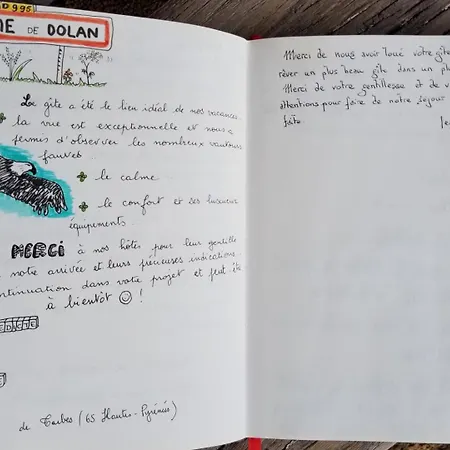 D995
ME DE DOLAN
Le gîte a été le lieu idéal de nos vacances.
la vue est exceptionnelle et nous a
permis d'observer les nombreux vautours
fauves.
le calme
le confort et ses luxueux
équipements.
MERCI à nos hôtes pour leur gentille
notre arrivée et leurs précieuses indications.
ontinuation dans votre projet et peut-être
à bientôt !
de Tarbes (65 Hautes-Pyrénées)
Merci de nous avoir loué votre gîte
rêver un plus beau gîte dans un pl
Merci de votre gentillesse et de v
attentions pour faire de notre séjour
faite.